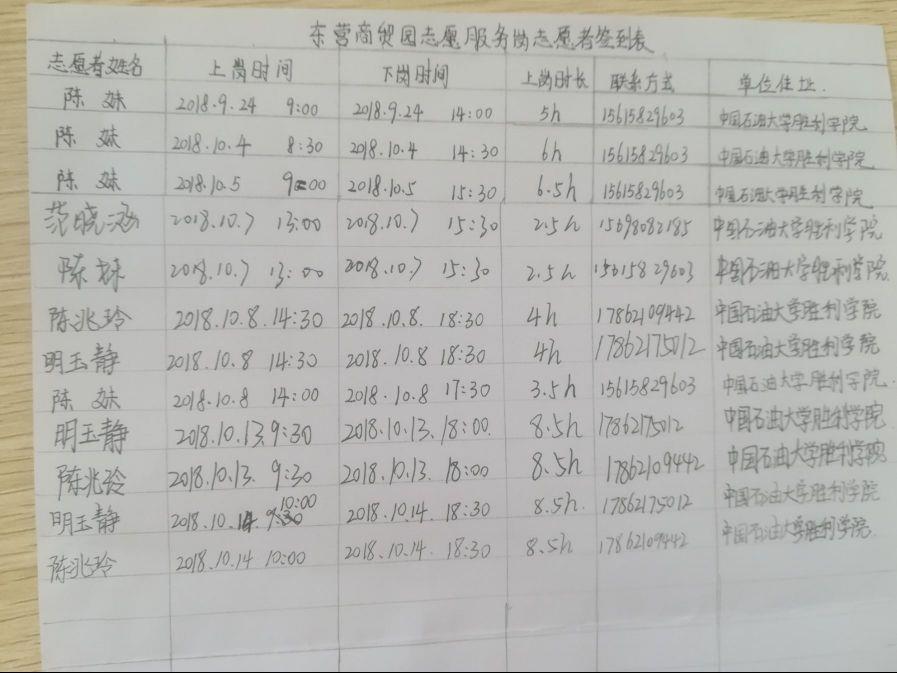 东营商贸园志愿服务岗志愿者签到表
志愿者姓名 上岗时间 下岗时间 上岗时长 联系方式 单位住址.
陈 妹 2018.9.24 9:00 2018.9.24 14:00 5h 15615829603 中国石油大学胜利学院
陈 妹 2018.10.4 8:30 2018.10.4 14:30 6h 15615829603 中国石油大学胜利学院
陈 妹 2018.10.5 9:00 2018.10.5 15:30 6.5h 15615829603 中国石油大学胜利学院
范晓涵 2018.10.7 13:00 2018.10.7 15:30 2.5h 15698082185 中国石油大学胜利学院
陈妹 2018.10.7 13:00 2018.10.7 15:30 2.5h 15615829603 中国石油大学胜利学院.
陈兆玲 2018.10.8.14:30 2018.10.8. 18:30 4h 17862109442 中国石油大学胜利学院
明玉静 2018.10.8 14:30 2018.10.8 18:30 4h 17862175012 中国石油大学胜利学院
陈 妹 2018.10.8 14:00 2018.10.8 17:30 3.5h 15615829603 中国石油大学胜利学院.
明玉静 2018.10.13.9:30 2018.10.13. 18:00. 8.5h 17862175012 中国石油大学胜利学院
陈兆玲 2018.10.13. 9:30 2018.10.13. 18:00 8.5h 17862109442 中国石油大学胜利学院
明玉静 2018.10.14. 10:00 2018.10.14. 18:30 8.5h. 17862175012 中国石油大学胜利学院
陈兆玲 2018.10.14 10:00 2018.10.14. 18:30 8.5h 17862109442 中国石油大学胜利学院.